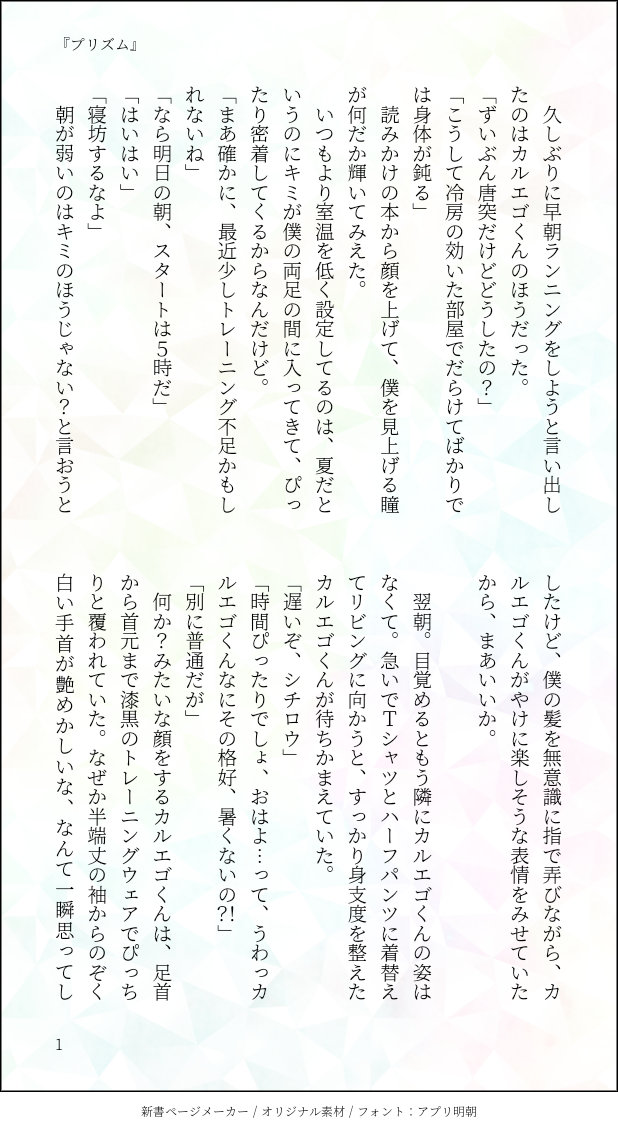 『プリズム』
　久しぶりに早朝ランニングをしようと言い出し
たのはカルエゴくんのほうだった。
「ずいぶん唐突だけどどうしたの？」
「こうして冷房の効いた部屋でだらけてばかりで
は身体が鈍る」
　読みかけの本から顔を上げて、僕を見上げる瞳
が何だか輝いてみえた。
　いつもより室温を低く設定してるのは、夏だと
いうのにキミが僕の両足の間に入ってきて、ぴっ
たり密着してくるからなんだけど。
「まあ確かに、最近少しトレーニング不足かもし
れないね」
「なら明日の朝、スタートは５時だ」
「はいはい」
「寝坊するなよ」
　朝が弱いのはキミのほうじゃない？と言おうと
したけど、僕の髪を無意識に指で弄びながら、カ
ルエゴくんがやけに楽しそうな表情をみせていた
から、まあいいか。
　翌朝。目覚めるともう隣にカルエゴくんの姿は
なくて。急いでＴシャツとハーフパンツに着替え
てリビングに向かうと、すっかり身支度を整えた
カルエゴくんが待ちかまえていた。
「遅いぞ、シチロウ」
「時間ぴったりでしょ、おはよ…って、うわっカ
ルエゴくんなにその格好、暑くないの?!」
「別に普通だが」
　何か？みたいな顔をするカルエゴくんは、足首
から首元まで漆黒のトレーニングウェアでぴっち
りと覆われていた。なぜか半端丈の袖からのぞく
白い手首が艶めかしいな、なんて一瞬思ってし
1
新書ページメーカー / オリジナル素材 / フォント：アプリ明朝